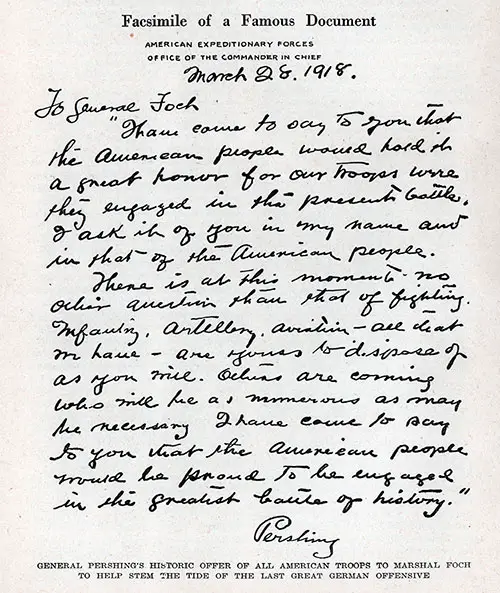 Facsimile of a Famous Document
AMERICAN EXPEDITIONARY FORCES
OFFICE OF THE COMMANDER IN CHIEF
March 28. 1918.
To General Foch
"I have come to say to you that
the American people would hold it
a great honor for our troops were
they engaged in the present battle.
I ask it of you in my name and
in that of the American people.
There is at this moment no
other question than that of fighting.
Infantry, Artillery, aviation - all that
we have - are yours to dispose of
as you will. Others are coming
who will be as numerous as may
be necessary I have come to say
to you that the American people
would be proud to be engaged
in the greatest battle of history."
Pershing
GENERAL PERSHING'S HISTORIC OFFER OF ALL AMERICAN TROOPS TO MARSHAL FOCH
TO HELP STEM THE TIDE OF THE LAST GREAT GERMAN OFFENSIVE